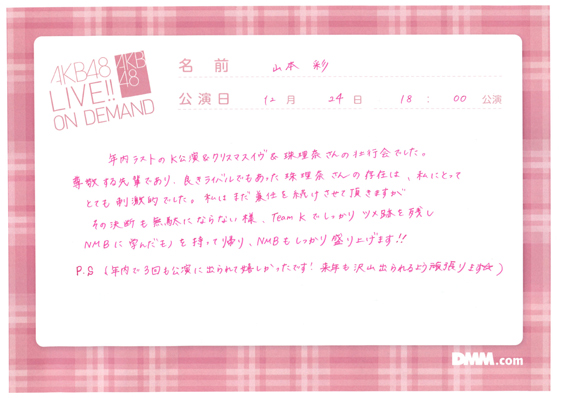 AKB48
LIVE!!
ON DEMAND
AKB
48
名 前 山本 彩
公演日 12 月 24 日 18 : 00 公演
年内ラストのK公演&クリスマスイヴ&珠理奈さんの壮行会でした。
尊敬する先輩であり、良きライバルでもあった珠理奈さんの存在は、私にとって
とても刺激的でした。私はまだ兼任を続けさせて頂きますが
その決断も無駄にならない様、Team Kでしっかりツメ跡を残し
NMBに学んだもノを持って帰り、NMBもしっかり盛り上げます!!
P.S (年内で3回も公演に出られて嬉しかったです! 来年も沢山出られるよう頑張ります☆)
DMM.com